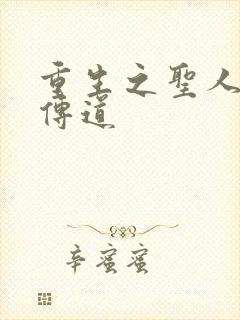 重生之聖人
傳道
辛蜜蜜